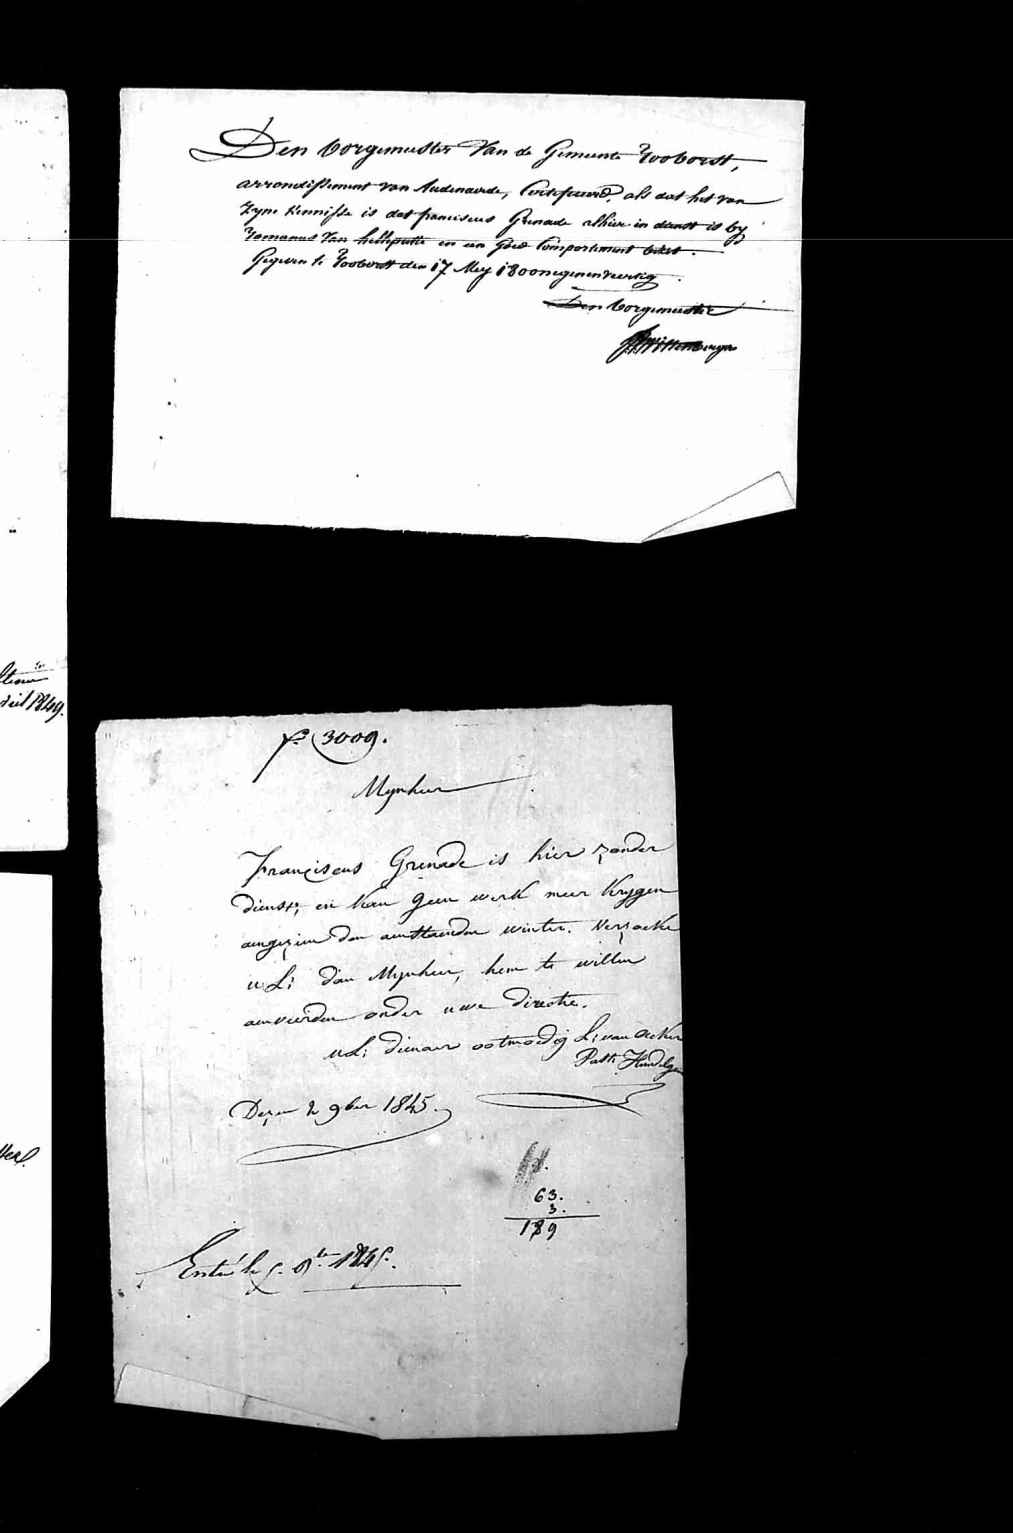 Den borgemeester Van de Gemeente Rooborst,
arrondissement van Audenaerde, Certifieerd, als dat het van
zyne kennisse is dat franciscus Grenade alhier in dienst is by
Romanus Van helleputte en een goed Comportement
Gegeven te Rooborst den 17 Mey 1800negenenveertig
Den borgemeester
1849.
3009.
Mynheer
Françiscus Grenade is hier zonder
dienst, en kan geen werk meer krygen
aengezien den aenstaenden winter. Verzoeke
u L: dan Mynheer, hem te willen
aenveerden onder uwe directie.
uL: dienaer ootmoedig L: van Acker
Past:
2 9ber 1845.
63.
3.
189
Entré le 5. 9bre 1845.